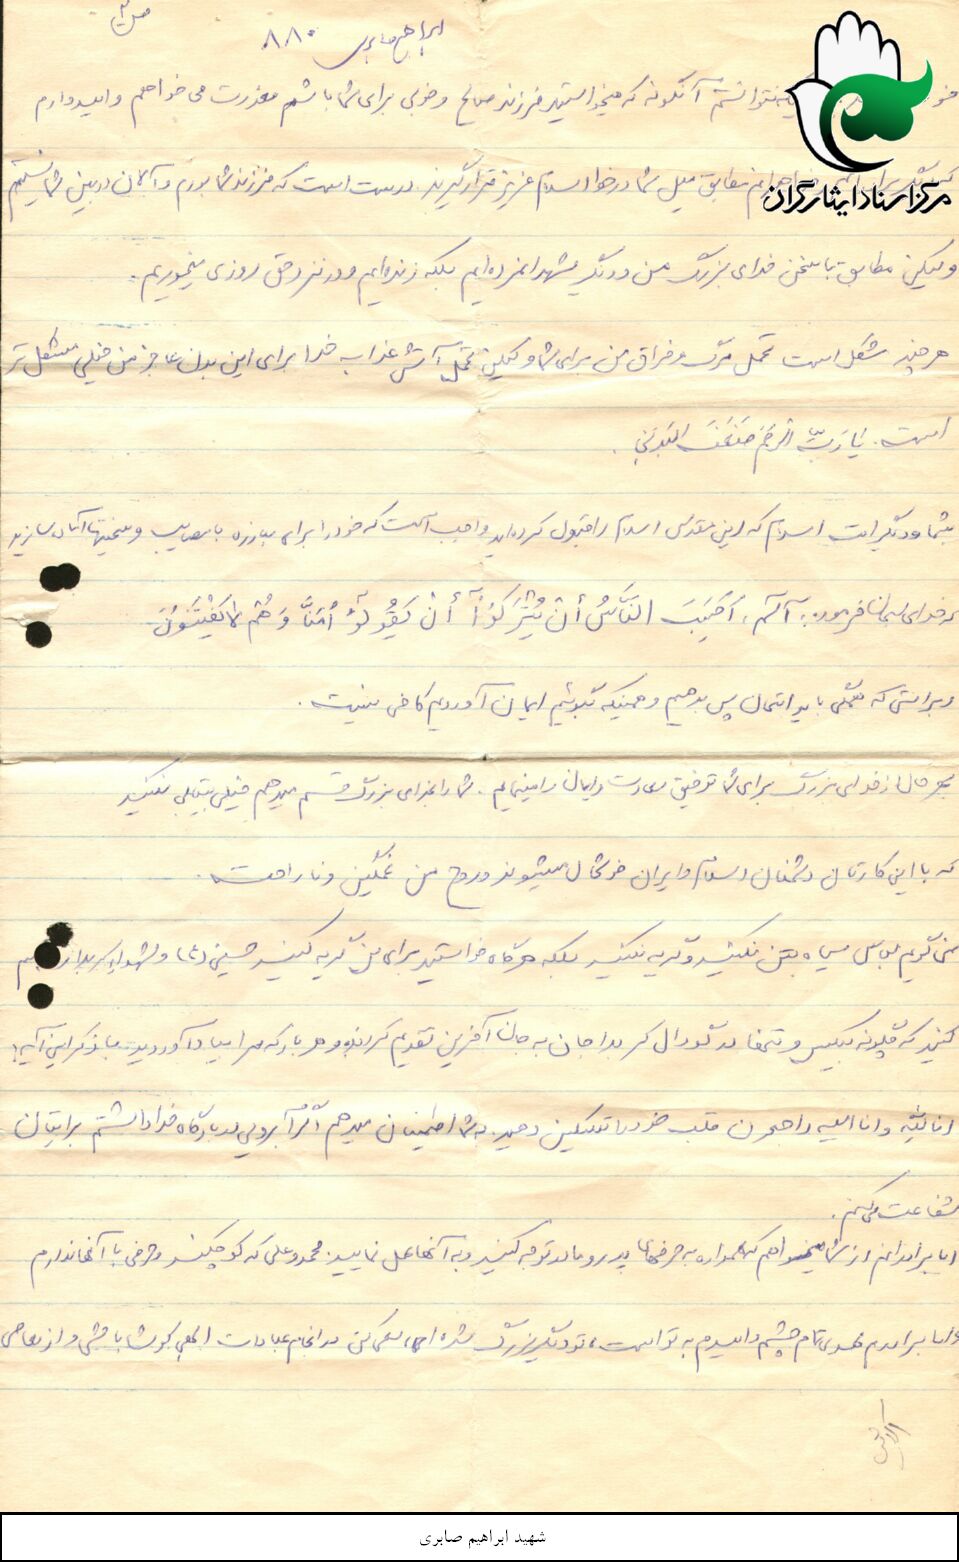 ص ۲
ابراهیم صابری ۸۸۰
نتوانستم آنگونه که میخواستید فرزند صالح و خوبی برای شما باشم معذرت می خواهم و امیدوارم
مطابق میل شما و در خور اسلام عزیز قرار گیرند. درست است که فرزند شما بودم و الان در بین شما نیستم
ولیکن مطابق با سخن خدای بزرگ من و دیگر شهدا نمرده‌ایم بلکه زنده‌ایم و در نزد حق روزی میخوریم.
هر چند مشکل است تحمل مرگ و فراق من برای شما ولیکن تحمل آتش عذاب خدا برای این بدن عاجز من خیلی مشکل تر
است. یا رَبِّ ارْحَمْ ضَعْفَ البَدَنی.
شما و دیگر امت اسلام که این مقدس اسلام را قبول کرده‌اید واجب است که خود را برای مبارزه با مصایب و سختیها آماده سازید
که خدای سبحان فرموده: آلم، اَحَسِبَ النّاسُ أنْ یُتْرَکُوا أنْ یَقُولُوْ امَنّا وَ هُمْ لا یُفْتَنُونَ
و براستی که همگی باید امتحان پس بدهیم و همینکه بگوئیم ایمان آوردیم کافی نیست.
بهر حال از خدای بزرگ برای شما توفیق و ایمان را مینمایم. شما را بخدای بزرگ قسم میدهم خیلی بیتابی نکنید
که با این کارتان دشمنان اسلام و ایران خوشحال میشوند و روح من غمگین و ناراحت.
نمی گویم لباس سیاه بتن نکنید و گریه نکنید بلکه هرگاه خواستید برای من گریه کنید حسین (ع) و شهدای کربلا
کنید که چگونه بیکس و تنها در گودال کربلا جان به جان آفرین تقدیم کردند و هر بار که مرا بیاد آوردید با ذکر این آیه:
انا لله و انا الیه راجعون قلب خود را تسکین دهید. به شما اطمینان میدهم اگر آبرویی در بارگاه خدا داشتم برایتان
شفاعت می کنم.
اما برادرانم از شما میخواهم که همواره به حرفهای پدر و مادر توجه کنید و به آنها عمل نمایید. محمد و علی که کوچکند و حرفی با آنها ندارم
و اما برادرم مهدی تمام چشم و امیدم به تو است، تو دیگر بزرگ شده ای، سعی کن در انجام عبادات الهی کوشا باشی و از معاصی
مرکز اسناد ایثارگران
شهید ابراهیم صابری